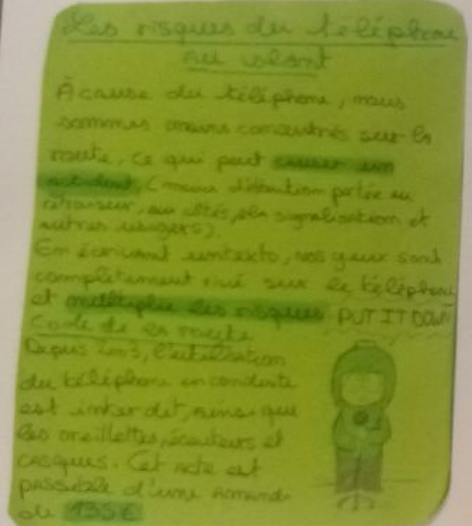 Les risques du téléphone
au volant
À cause du téléphone, nous
sommes moins concentrés sur la
route, ce qui peut causer un
accident, (moins d'attention portée au
rétroviseur, aux côtés, à la signalisation et
autres usagers).
En écrivant un texto, nos yeux sont
complètement rivé sur le téléphone
et multiplie les risques PUT IT DOWN
Code de la route
Depuis 2003, l'utilisation
du téléphone en conduite
est interdit, ainsi que
les oreillettes, écouteurs et
casques. Cet acte est
passible d'une amande
de 135€